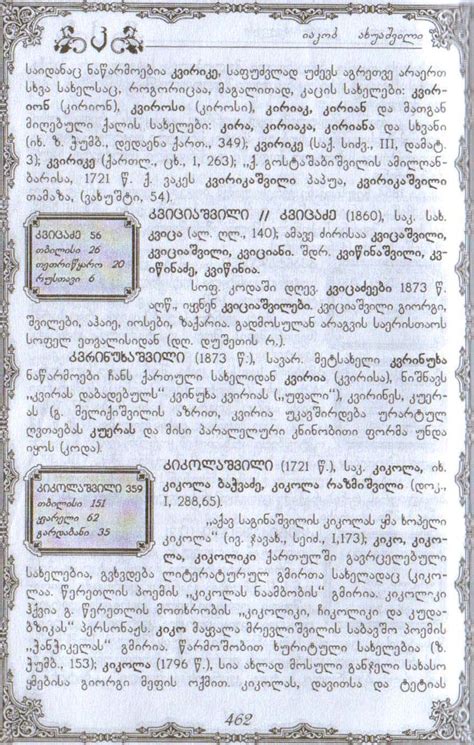 იაკობ ახუაშვილი
საიდანაც ნაწარმოებია კვირიკე, საფუძვლად უძევს აგრეთვე არაერთ
სხვა სახელსაც, როგორიცაა, მაგალითად, კაცის სახელები: კვირ-
იონ (კირიონ), კვიროსი (კიროსი), კირიაკ, კირიან და მათგან
მიღებული ქალის სახელები: კირა, კირიაკა, კირიანა და სხვანი
(იხ. ზ. ჭუმბ., დედაენა ქართ., 349); კვირიკე (საქ. სიძვ., III, დამატ.
3); კვირიკე (ქართლ., ცხ., 1, 263); „ქ. გოსტაშაბიშვილის ამილახ-
ბარისა, 1721 წ. ქ. ვაკეს კვირიკაშვილი პაპუა, კვირიკაშვილი
თამაზა, (ვახუშტი, 54).
კვიცაძე 56
თბილისი 26
თეთრიწყარო 20
რუსთავი 6
კვიციაშვილი // კვიცაძე (1860), საკ. სახ.
კვიცა (ალ. ღლ., 140); ამავე ძირისაა კვიცაშვილი,
კვიციაშვილი, კვიციანი. შდრ. კვიწინაშვილი, კვ-
იწინაძე, კვიწინია.
სოფ. კოდაში დღევ. კვიცაძეები 1873 წ.
აღწ., იყნენ კვიციაშვილები. კვიციაშვილი გიორგი,
შვილები, პაიჭე, იოსები, ზაქარია. გადმოსულან არაგვის საერისთაოს
სოფელ ეთვალისიდან (დღ. დუშეთის რ.).
კვრინუხაშვილი (1873 წ.), სავარ. მეტსახელი კვრინუხა
ნაწარმოები ჩანს ქართული სახელიდან კვირია (კვირისა), ნიშნავს
„კვირას დაბადებულს“ კვინუხა კვირიას („უფალი“), კვირინეს, კუერ-
ას (გ. მელიქიშვილის აზრით, კვირია უკავშირდება ურარტულ
ღვთაებას კუერას და მისი პარალელური კნინობითი ფორმა უნდა
იყოს (კოდა).
კიკოლაშვილი 359
თბილისი 151
ყვარელი 62
გარდაბანი 35
კიკოლაშვილი (1721 წ.), საკ. კიკოლა, იხ.
კიკოლა ბაჭვაძე, კიკოლა რაზმიშვილი (დოკ.,
I, 288,65).
„აქავ საგინაშვილის კიკოლას ყმა ხოხელი
კიკოლა“ (ივ. ჯავახ., სეიდ., I,173); კიკო, კიკო-
ლა, კიკოლიკი ქართულში გავრცელებული
სახელებია, გვხვდება ლიტერატურულ გმირთა სახელადაც (კიკო-
ლაა. წერეთლის პოემის „კიკოლას ნაამბობის“ გმირია. კიკოლიკი
ჰქვია გ. წერეთლის მოთხრობის „კიკოლიკი, ჩიკოლიკი და კუდა-
ბზიკას“ პერსონაჟს. კიკო მაყვალა მრევლიშვილის საბავშო პოემის
„ჰანჭიკელას“ გმირია. წარმოშობით ხურიტული სახელებია (ზ.
ჭუმბ., 153); კიკოლა (1796 წ.), სია ახლად მოსული განჯელი სახასო
ყმებისა გიორგი მეფის ოქმით. კიკოლას, დავითსა და ტეტიას
462